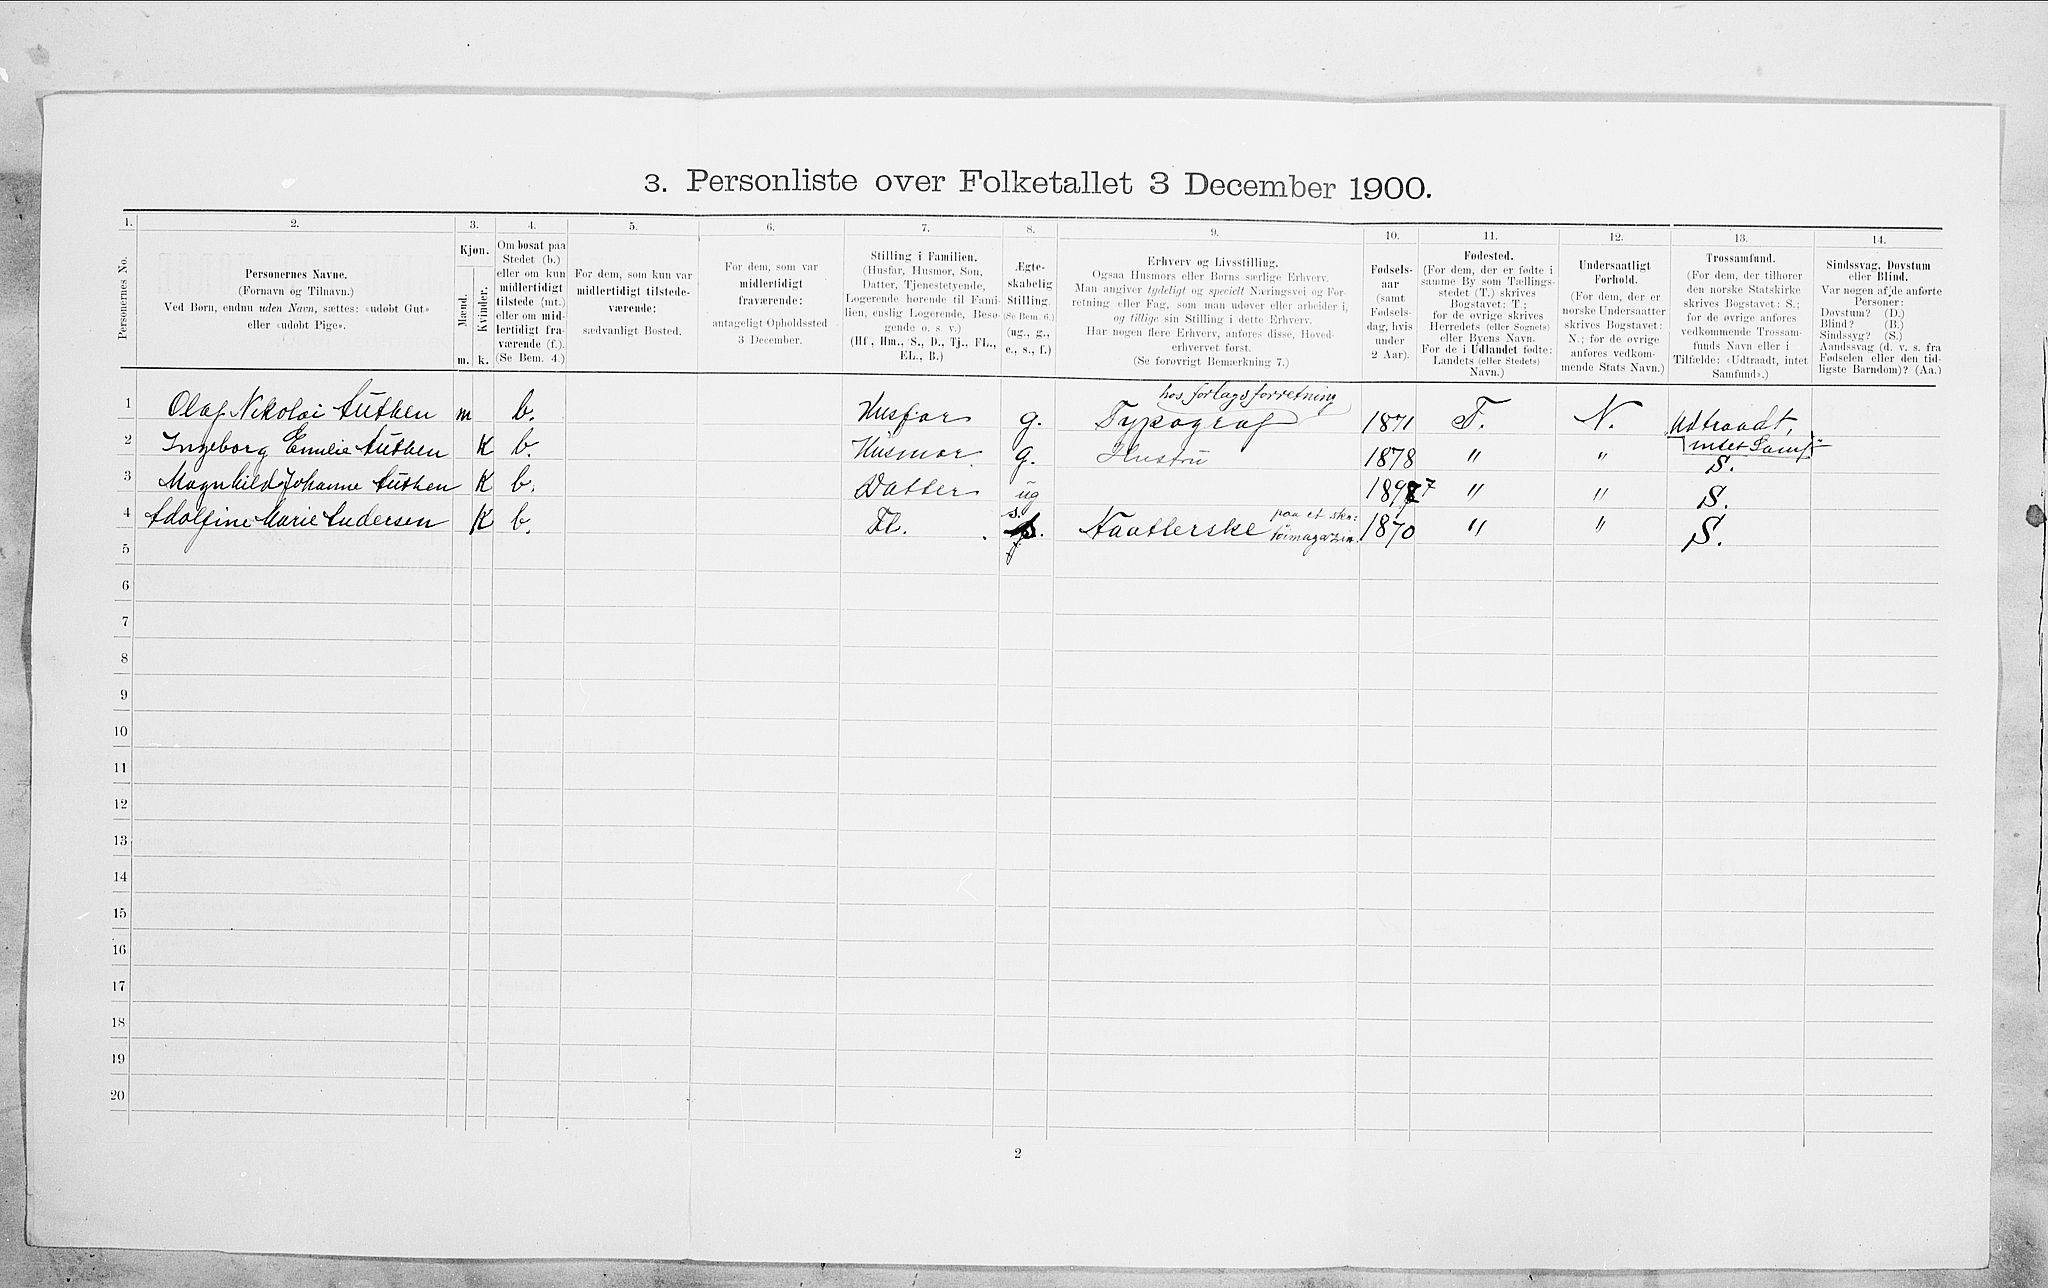 3. Personliste over Folketallet 3 December 1900.
1. 2. 3. 4. 5. 6. 7. 8. 9. 10. 11. 12. 13. 14.
Personernes No.
Personernes Navne.
(Fornavn og Tilnavn.)
Ved Børn, endnu uden Navn, sættes: «udøbt Gut»
eller «udøbt Pige».
Kjøn.
Mænd.
Kvinder.
m. k.
Om bosat paa
Stedet (b.)
eller om kun
midlertidigt
tilstede (mt.)
eller om mid-
lertidigt fra-
værende (f.).
(Se Bem. 4.)
For dem, som kun var
midlertidigt tilstede-
værende:
sædvanligt Bosted.
For dem, som var
midlertidigt
fraværende:
antageligt Opholdssted
3 December.
Stilling i Familien.
(Husfar, Husmor, Søn,
Datter, Tjenestetyende,
Logerende hørende til Fami-
lien, enslig Logerende, Besø-
gende o. s. v.)
(Hf., Hm., S., D., Tj., FL.,
EL., B.)
Ægte-
skabelig
Stilling.
(Se Bem. 6.)
(ug., g.,
e., s., f.)
Erhverv og Livsstilling.
Ogsaa Husmors eller Børns særlige Erhverv.
Man angiver tydeligt og specielt Næringsvei og For-
retning eller Fag, som man udøver eller arbeider i,
og tillige sin Stilling i dette Erhverv.
Har nogen flere Erhverv, anføres disse, Hoved-
erhvervet først.
(Se forøvrigt Bemærkning 7.)
Fødsels-
aar
(samt
Fødsels-
dag, hvis
under
2 Aar).
Fødested.
(For dem, der er fødte i
samme By som Tællings-
stedet (T.) skrives
Bogstavet: T;
for de øvrige skrives
Herredets (eller Sognets)
eller Byens Navn.
For de i Udlandet fødte:
Landets (eller Stedets)
Navn.)
Undersaatligt
Forhold.
(For dem, der er
norske Undersaatter
skrives Bogstavet:
N.; for de øvrige
anføres vedkom-
mende Stats Navn.)
Trossamfund.
(For dem, der tilhører
den norske Statskirke
skrives Bogstavet: S.;
for de øvrige anføres
vedkommende Trossam-
funds Navn eller i
Tilfælde: «Udtraadt, intet
Samfund».)
Sindssvag, Døvstum
eller Blind.
Var nogen af de anførte
Personer:
Døvstum? (D.)
Blind? (B.)
Sindssyg? (S.)
Aandssvag (d. v. s. fra
Fødselen eller den tid-
ligste Barndom)? (Aa.)
hos forlagsforretning
1 Olaf Nikolai Authen m b. Husfar g. Typograf 1871 T. N. Udtraadt,
intet Samf
2 Ingeborg Emilie Authen K b. Husmor g. Hustru 1878 " " S.
3 Magnhild Johanne Authen K b. Datter ug 1897 " " S.
4 Adolfine Marie Andersen K b. Fl. s. Naatlerske paa et sko- 1870 " " S.
tøimagasin.
5
6
7
8
9
10
11
12
13
14
15
16
17
18
19
20
2